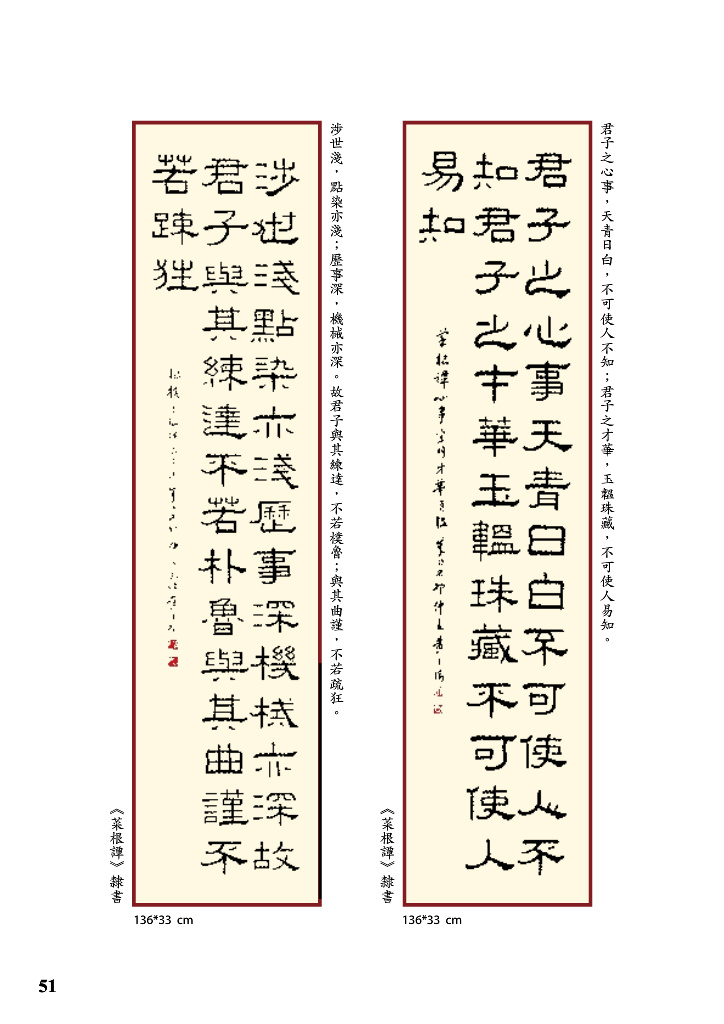 君子之心事，天青日白，不可使人不知；君子之才華，玉韞珠藏，不可使人易知。
君子之心事天青日白不可使人不
知君子之才華玉韞珠藏不可使人
易知
《菜根譚》隸書
136*33 cm
涉世淺，點染亦淺；歷事深，機械亦深。故君子與其練達，不若樸魯；與其曲謹，不若疏狂。
涉世淺點染亦淺歷事深機械亦深故
君子與其練達不若朴魯與其曲謹不
若踈狂
《菜根譚》隸書
136*33 cm
51